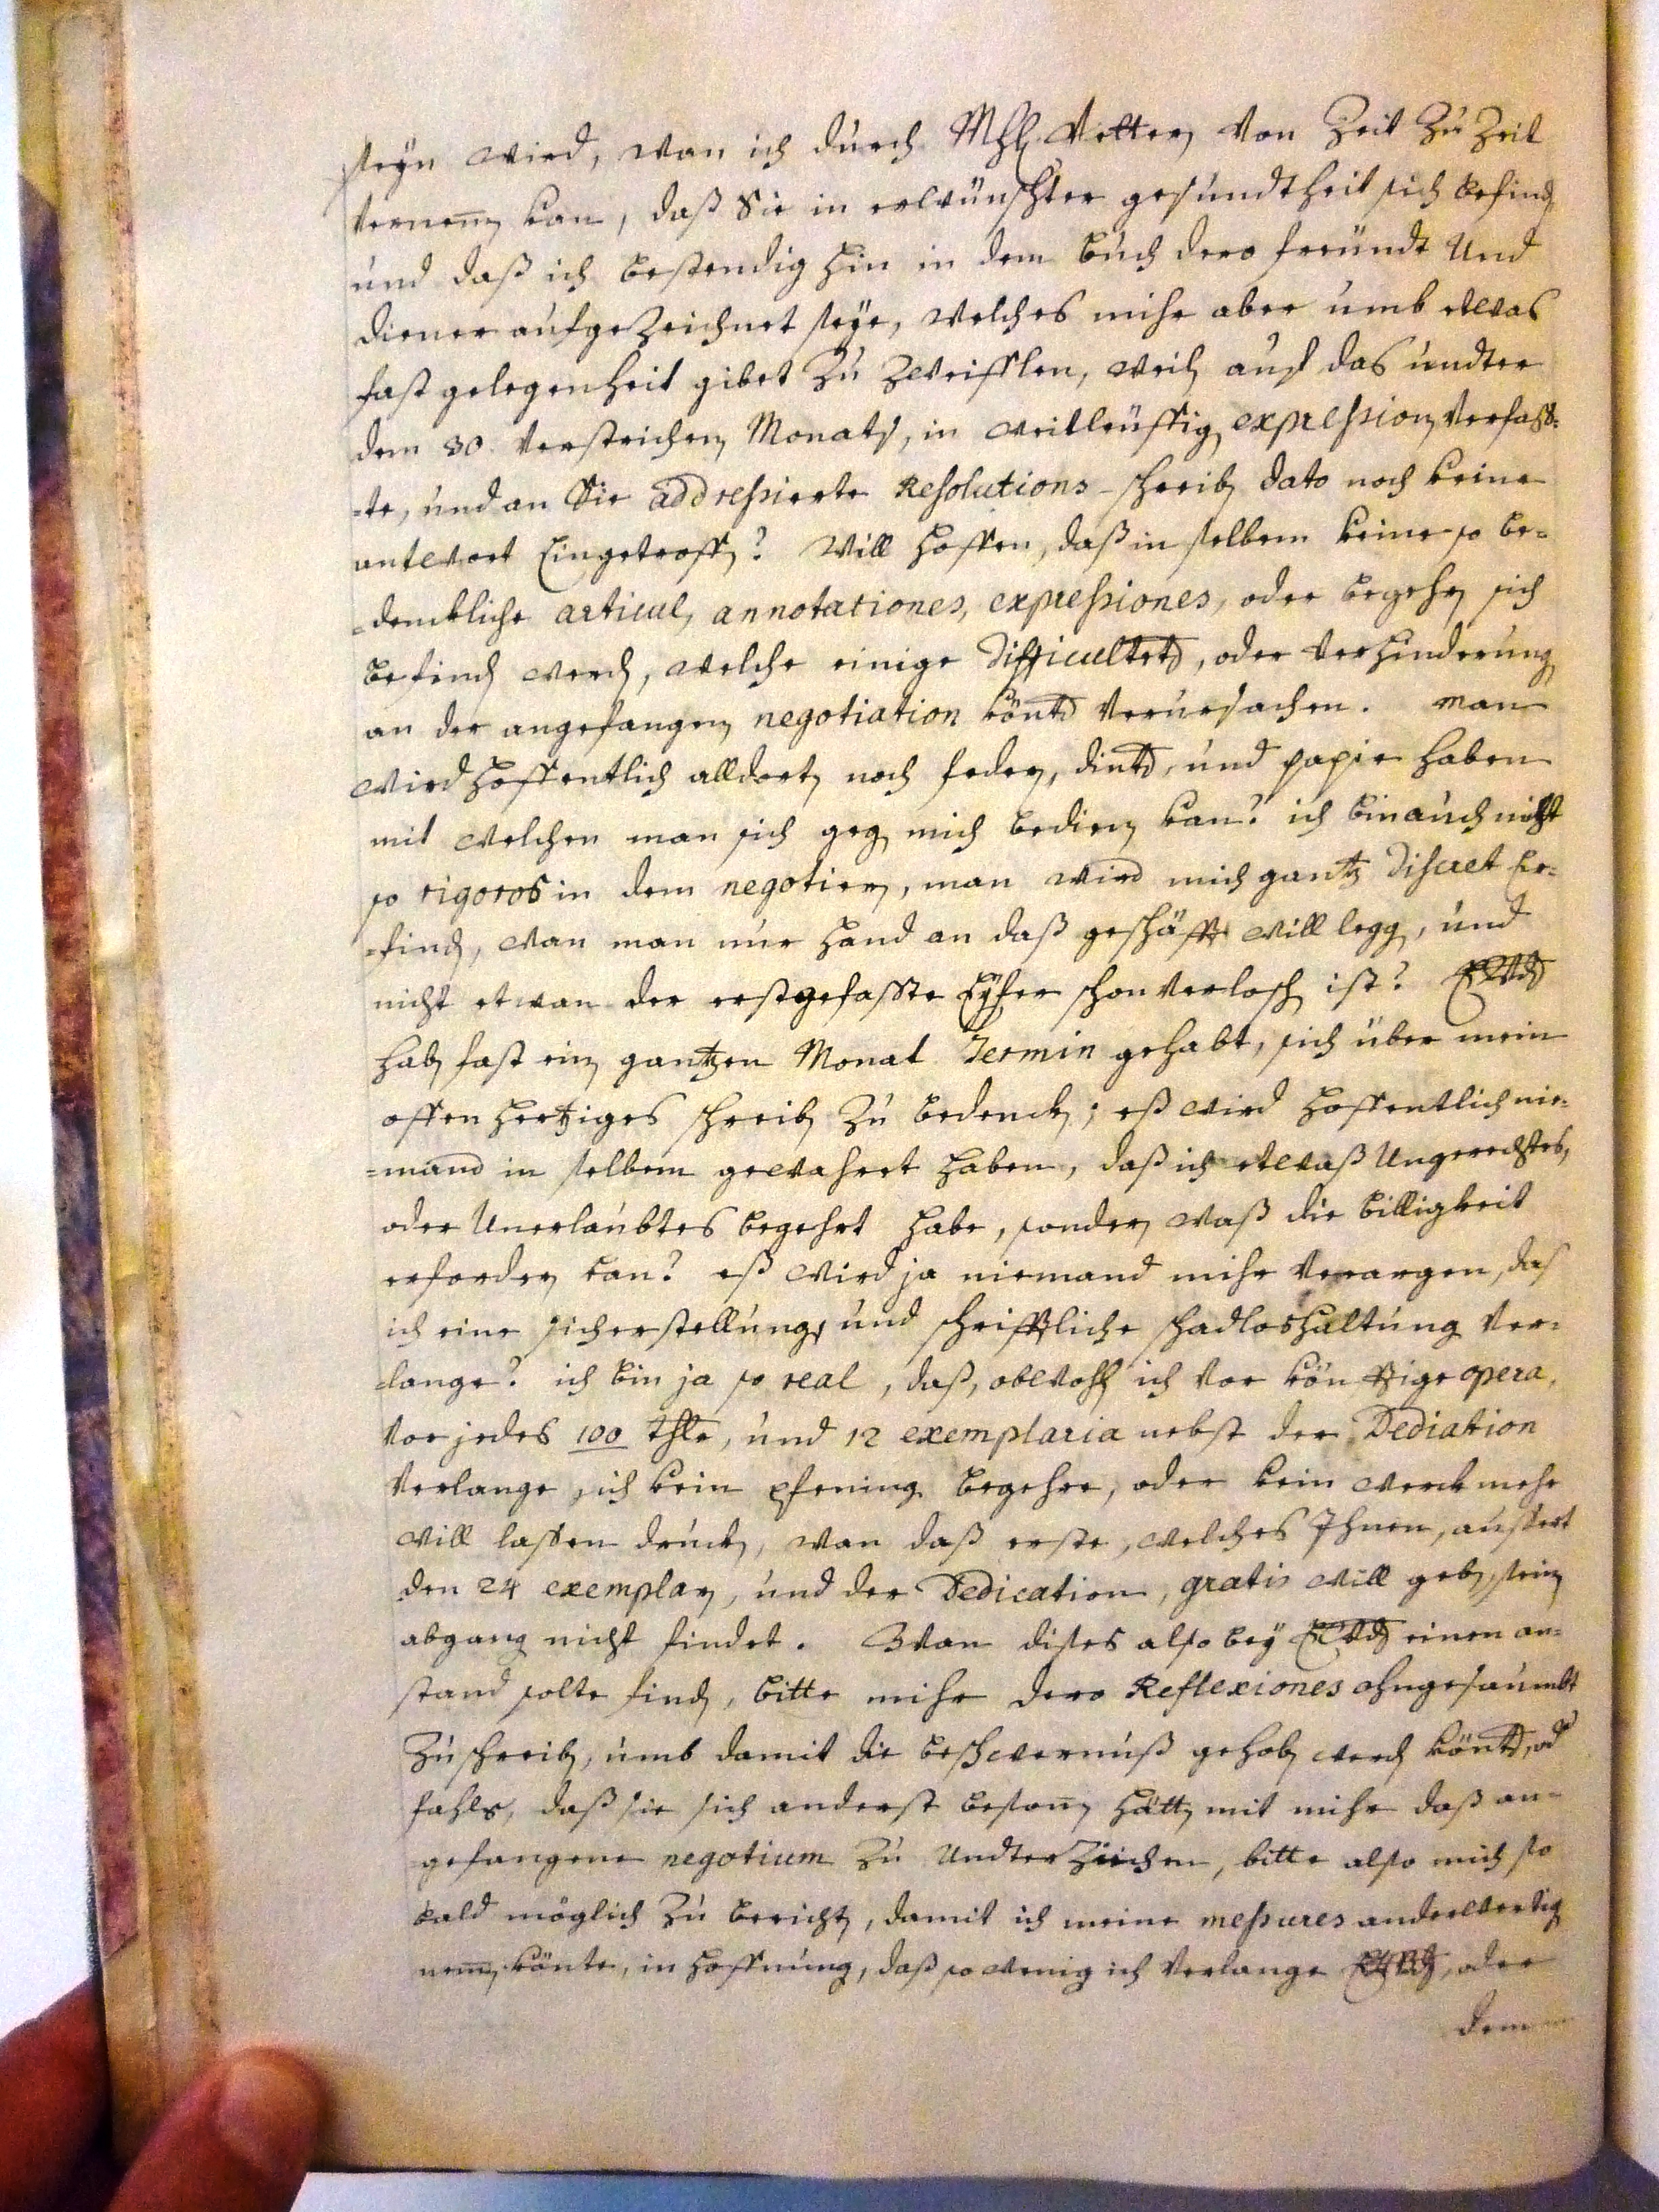 seyn wird, wan ich durch Mhl Vetter Von Zeit Zu Zeit
Vernem̅en kan, daß Sie in erwünschter gesundtheit sich befinden
und daß ich bestendig hin in dem buch dero freündt Und
diener aufgezeichnet seye, Welches mihr aber umb etwas
fast gelegenheit gibet Zu Zweifflen, weilen auf das undter
dem 30. Verstrichen Monats, in weitleüffigen expressionen Verfass-
-te, und an Sie addressierte Resolutions-schreiben dato noch keine
antwort Eingetroffen? Will hoffen, daß in selbem keine so be-
-denckliche articul, annotationes, expressiones, oder begehren sich
befinden werden, welche einige Difficulteten, oder Verhinderung
an der angefangenen negotiation könten Verursachen. Man
wird hoffentlich alldorten noch federn, dinten, und papir haben
mit welchen man sich gegen mich bedienen kan? ich bin auch nicht
so rigoros in dem negotieren, man wird mich gantz Discret Er-
-finden, wan man nur hand an daß geschäfft will legen, und
nicht etwan der erstgefasste Eyfer schon Verloschen ist?
haben fast einen gantzen Monat Termin gehabt, sich über mein
offen hertziges schreiben Zu bedencken; eß wird hoffentlich nie-
-mand in selbem gewahret haben, daß ich etwaß Ungerechtes,
oder Unerlaubtes begehrt habe, sondern waß die billigkeit
erfordern kan? eß wird ja niemand mihr Verargen, das
ich eine sicherstellung, und schrifftliche schadloshaltung Ver-
-lange? ich bin ja so real, daß, obwohl ich Vor könfftige opera,
Vor jedes 100 thlr, und 12 exemplaria nebst der Dediation
Verlange, ich kein pfening begehre, oder kein werck mehr
will lassen drucken, wan daß erste, welches Ihnen, aussert
den 24 exemplarn, und der Dedication, gratis will geben, seinen
abgang nicht findet. Wan dises also bey einen an-
stand solte finden, bitte mihr dero Reflexiones ohngesaumbt
Zuschreiben, umb damit die beschwernuß gehoben werden könten, od
fahls, daß sie sich anderst beson̅en hätten mit mihr daß an-
gefangene negotium Zu Undterziechen, bitte also mich so
bald möglich Zu berichten, damit ich meine messures anderwertig
nem̅en könte, in hoffnung, daß so wenig ich Verlange, oder
dem